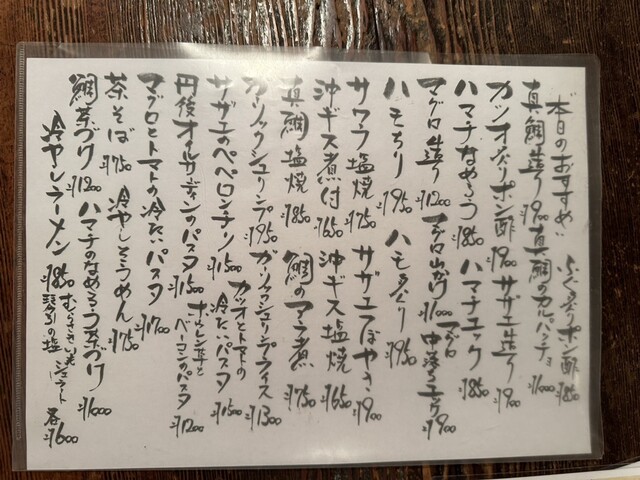 本日のおすすめ!! ふぐ炙りポン酢 ¥850
真鯛造り ¥900 真鯛のカルパッチョ ¥1000
カツオ炙りポン酢 ¥900 サザエ造り ¥900
ハマチなめろう ¥850 ハマチユッケ ¥850
マグロ造り ¥1200 マグロ山かけ ¥1000 マグロ中落ちユッケ ¥900
ハモちり ¥950 ハモ炙り ¥950
サワラ塩焼 ¥750 サザエつぼやき ¥900
沖ギス煮付 ¥650 沖ギス塩焼 ¥650
真鯛塩焼 ¥850 鯛のアラ煮 ¥750
ガーリックシュリンプ ¥950 ガーリックシュリンプライス ¥1300
サザエのペペロンチーノ ¥1500 カツオとトマトの冷たいパスタ ¥1500
丹後オイルサーディンのパスタ ¥1500 ホウレン草とベーコンのパスタ ¥1200
マグロとトマトの冷たいパスタ ¥1700
茶そば ¥750 冷やしそうめん ¥750
鯛茶づけ ¥1200 ハマチのなめろう茶づけ ¥1000
冷やしラーメン ¥850 むらさきいもジェラート 各¥600
の塩